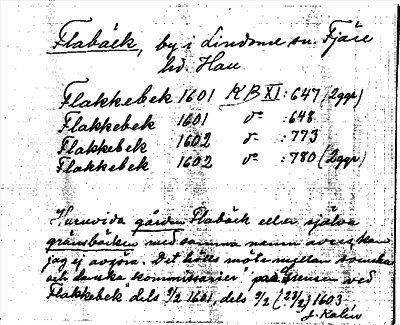 Flabäck, by i Lindome sn. Fjäre
hd. Hall.
Flakkebek 1601 KB XI : 647 (2ggr)
Flakkebek 1601 d:o : 648
Flakkebek 1602 d:o : 773
Flakkebek 1602 d:o : 780 (2ggr)
Huruvida gården Flabäck eller själva
gränsbäcken med samma namn avses, kan
jag ej avgöra. Det hölls möte mellan svenska
och danska kommissarier "på gränsen ved
Flakkebek" dels 9/2 1601, dels 9/2 (23/2) 1603.
J. Kalén